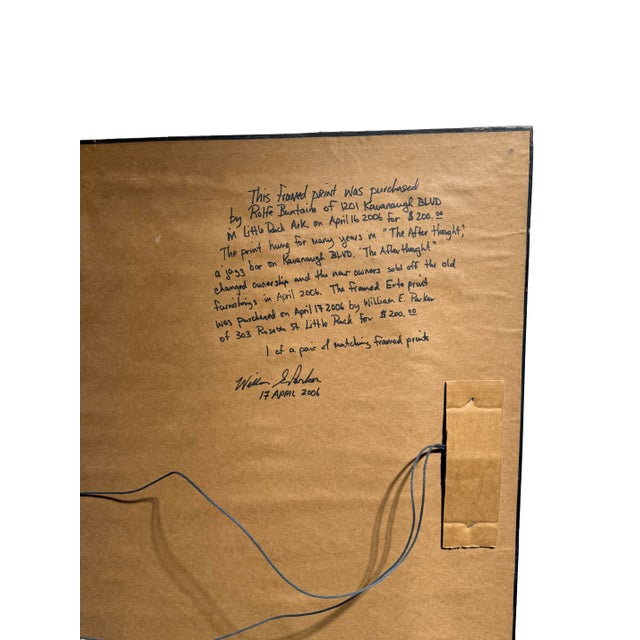 This framed print was purchased
by Rolfe Buntaine of 1201 Kavanaugh BLVD
in Little Rock Ark. on April 16 2006 for $200.00
The print hung for many years in "The After thought",
a jazz bar on Kavanaugh BLVD. "The Afterthought"
changed ownership and the new owners sold off the old
furnishings in April 2006. The framed Erte print
was purchased on April 17 2006 by William E. Parker
of 303 St Little Rock for $200.00
1 of a pair of matching framed prints
William E Parker
17 APRIL 2006